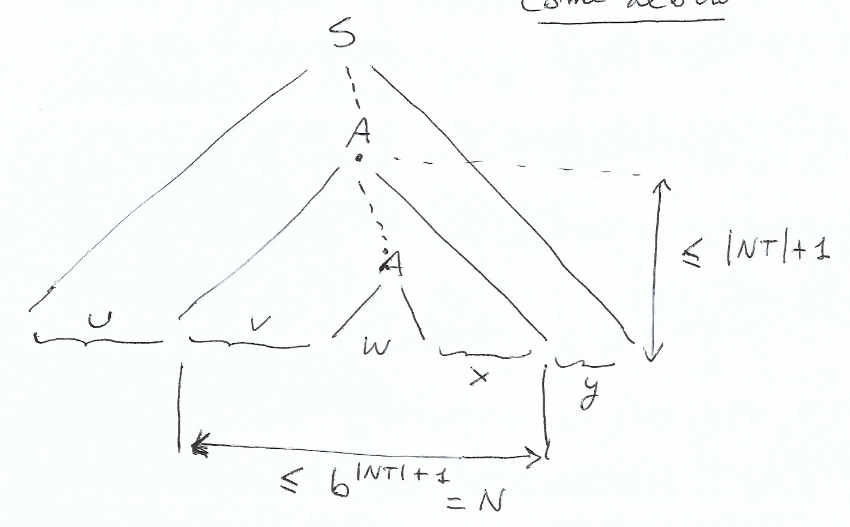 S
A
A
≤ |NT|+1
U V W X y
≤ b^|NT|+1
= N